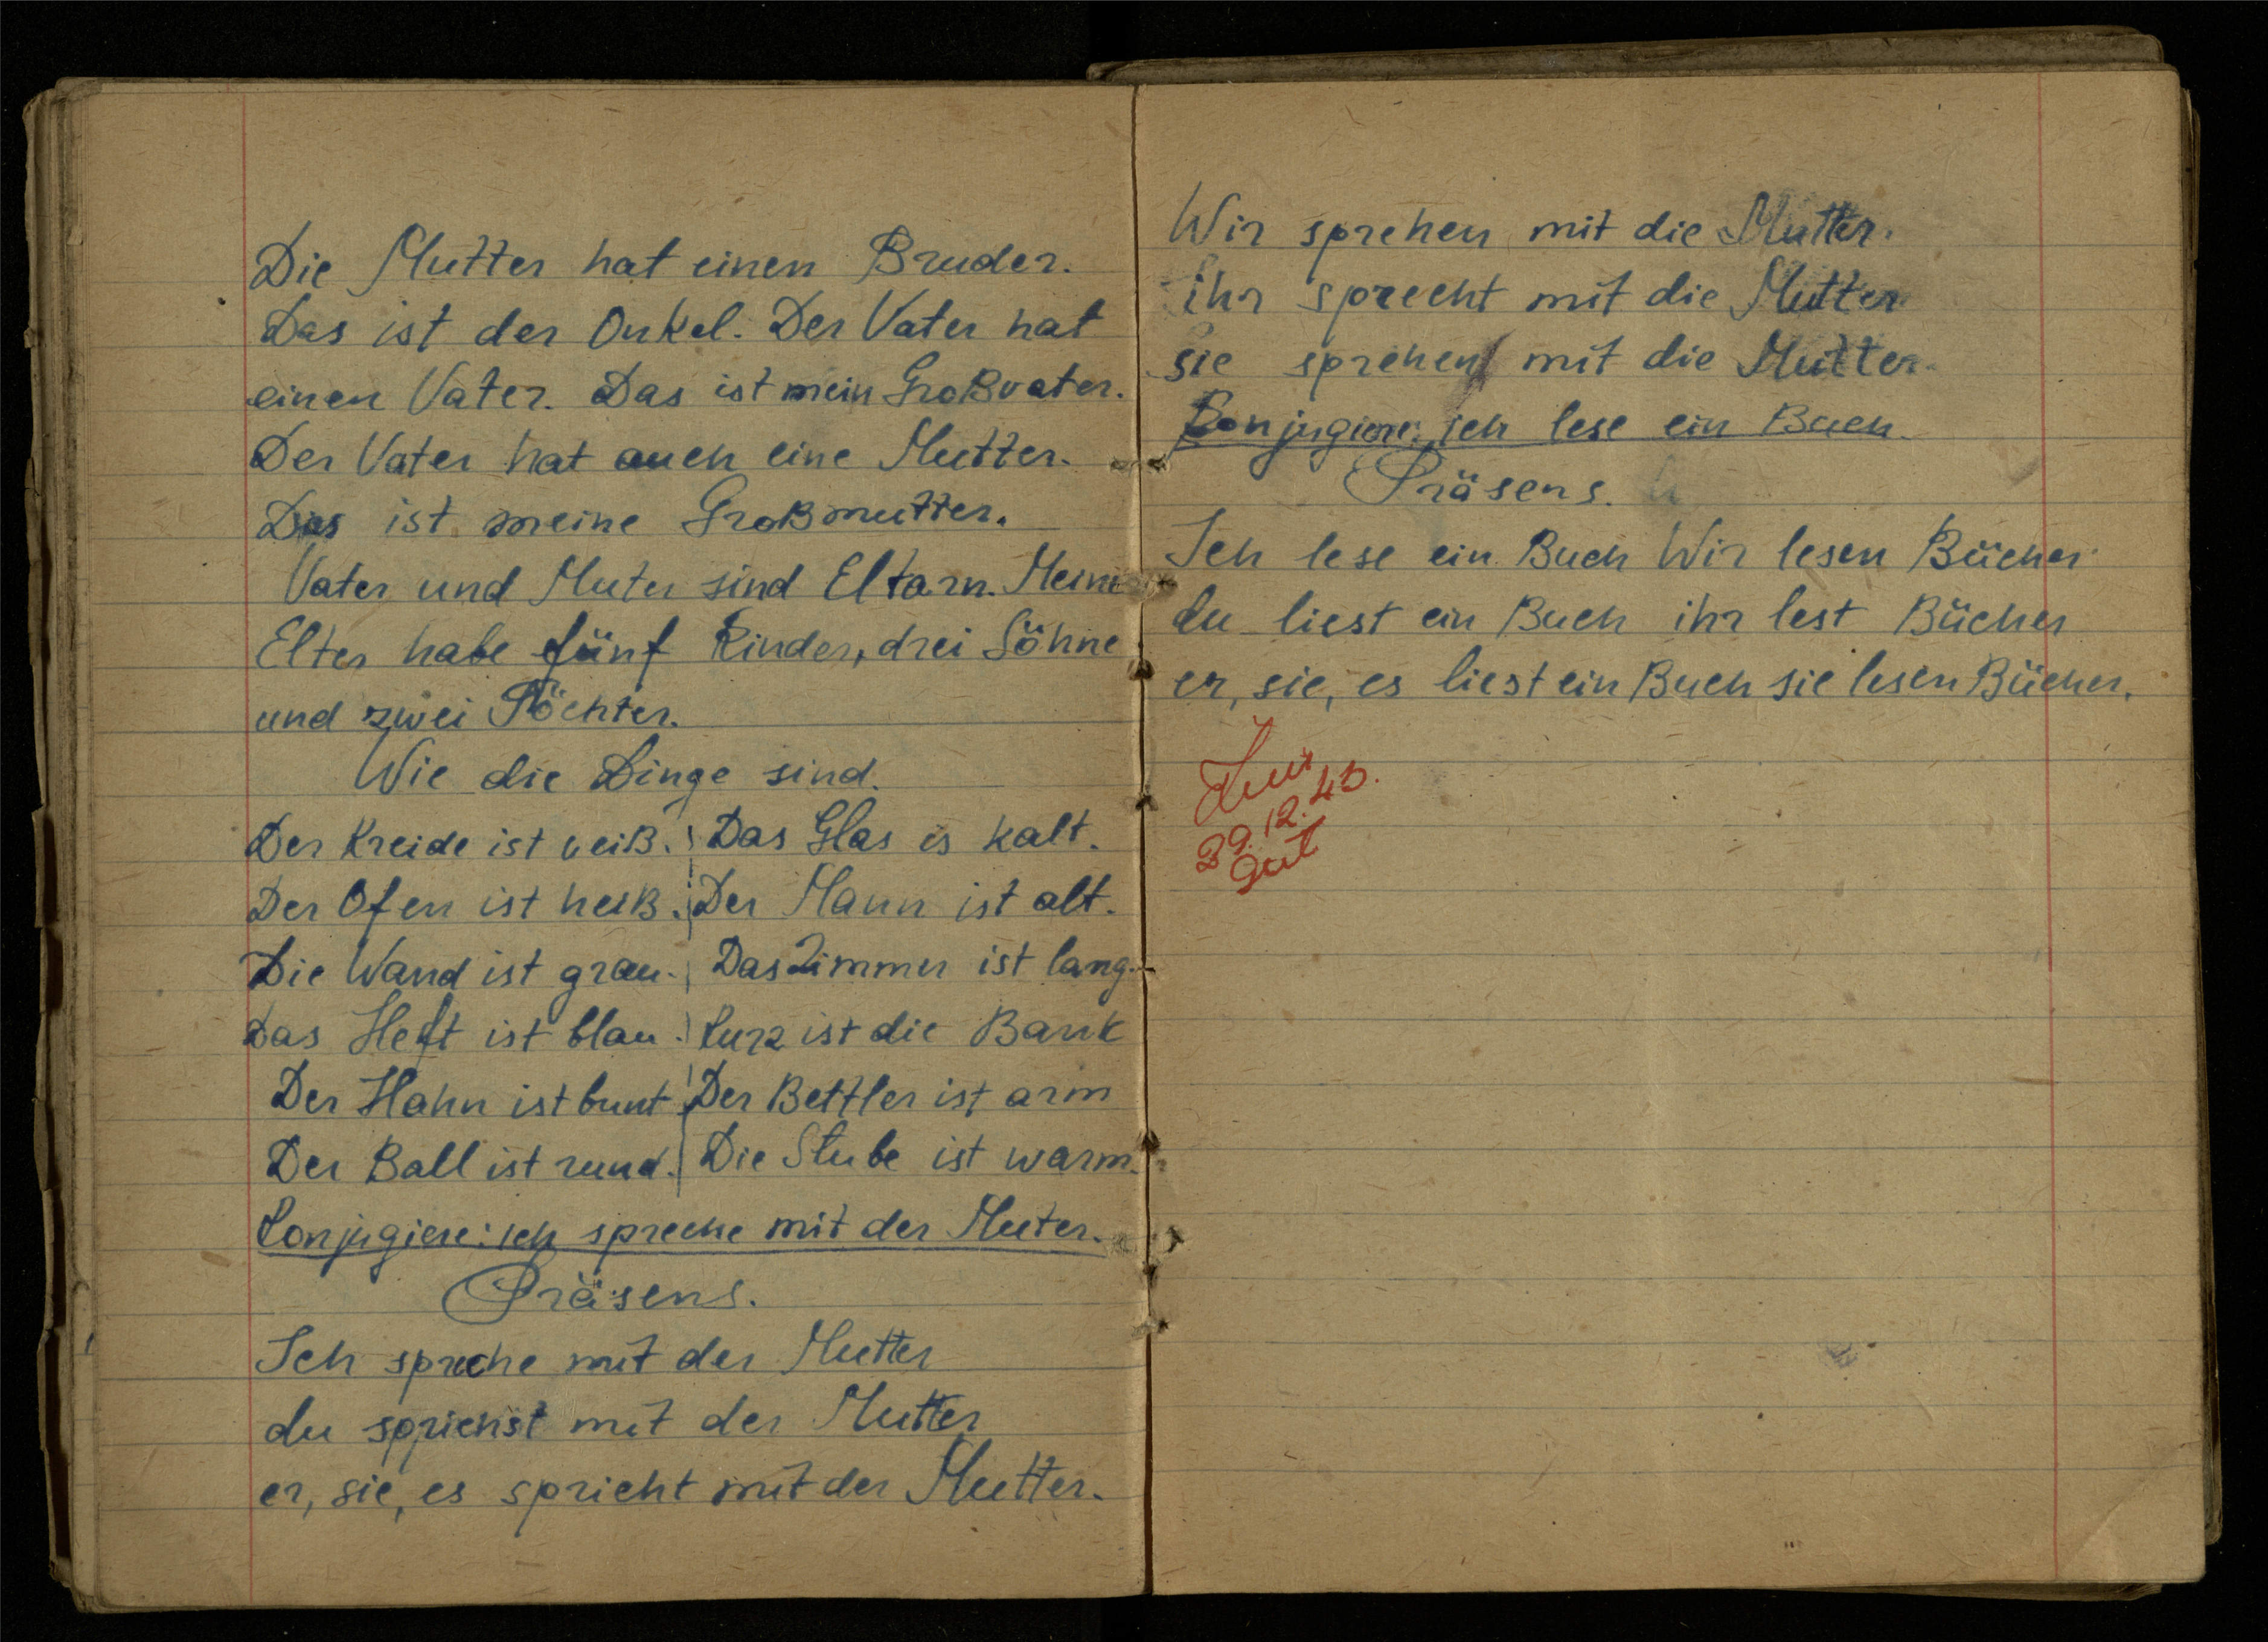 Die Mutter hat einen Bruder.
Das ist der Onkel. Der Vater hat
einen Vater. Das ist mein Großvater.
Der Vater hat auch eine Mutter.
Das ist meine Großmutter.
Vater und Muter sind Eltarn. Meine
Elter habe fünf Kinder, drei Söhne
und zwei Töchter.
Wie die Dinge sind.
Der Kreide ist veiß. Das Glas is kalt.
Der Ofen ist heiß. Der Mann ist alt.
Die Wand ist grau. Das Zimmer ist lang.
Das Heft ist blau. Kurz ist die Bank
Der Hahn ist bunt. Der Bettler ist arm
Der Ball ist rund. Die Stube ist warm.
Konjugiere: ich spreche mit der Muter.
Präsens.
Ich spreche mit der Mutter
du sprichst mit der Mutter
er, sie, es spricht mit der Mutter.
Wir sprehen mit die Mutter.
ihr sprecht mit die Mutter
sie sprehen mit die Mutter.
Konjugiere: ich lese ein Buch.
Präsens.
Ich lese ein Buch Wir lesen Bücher
du liest ein Buch ihr lest Bücher
er, sie, es liest ein Buch sie lesen Bücher.
29.12.43.
gut